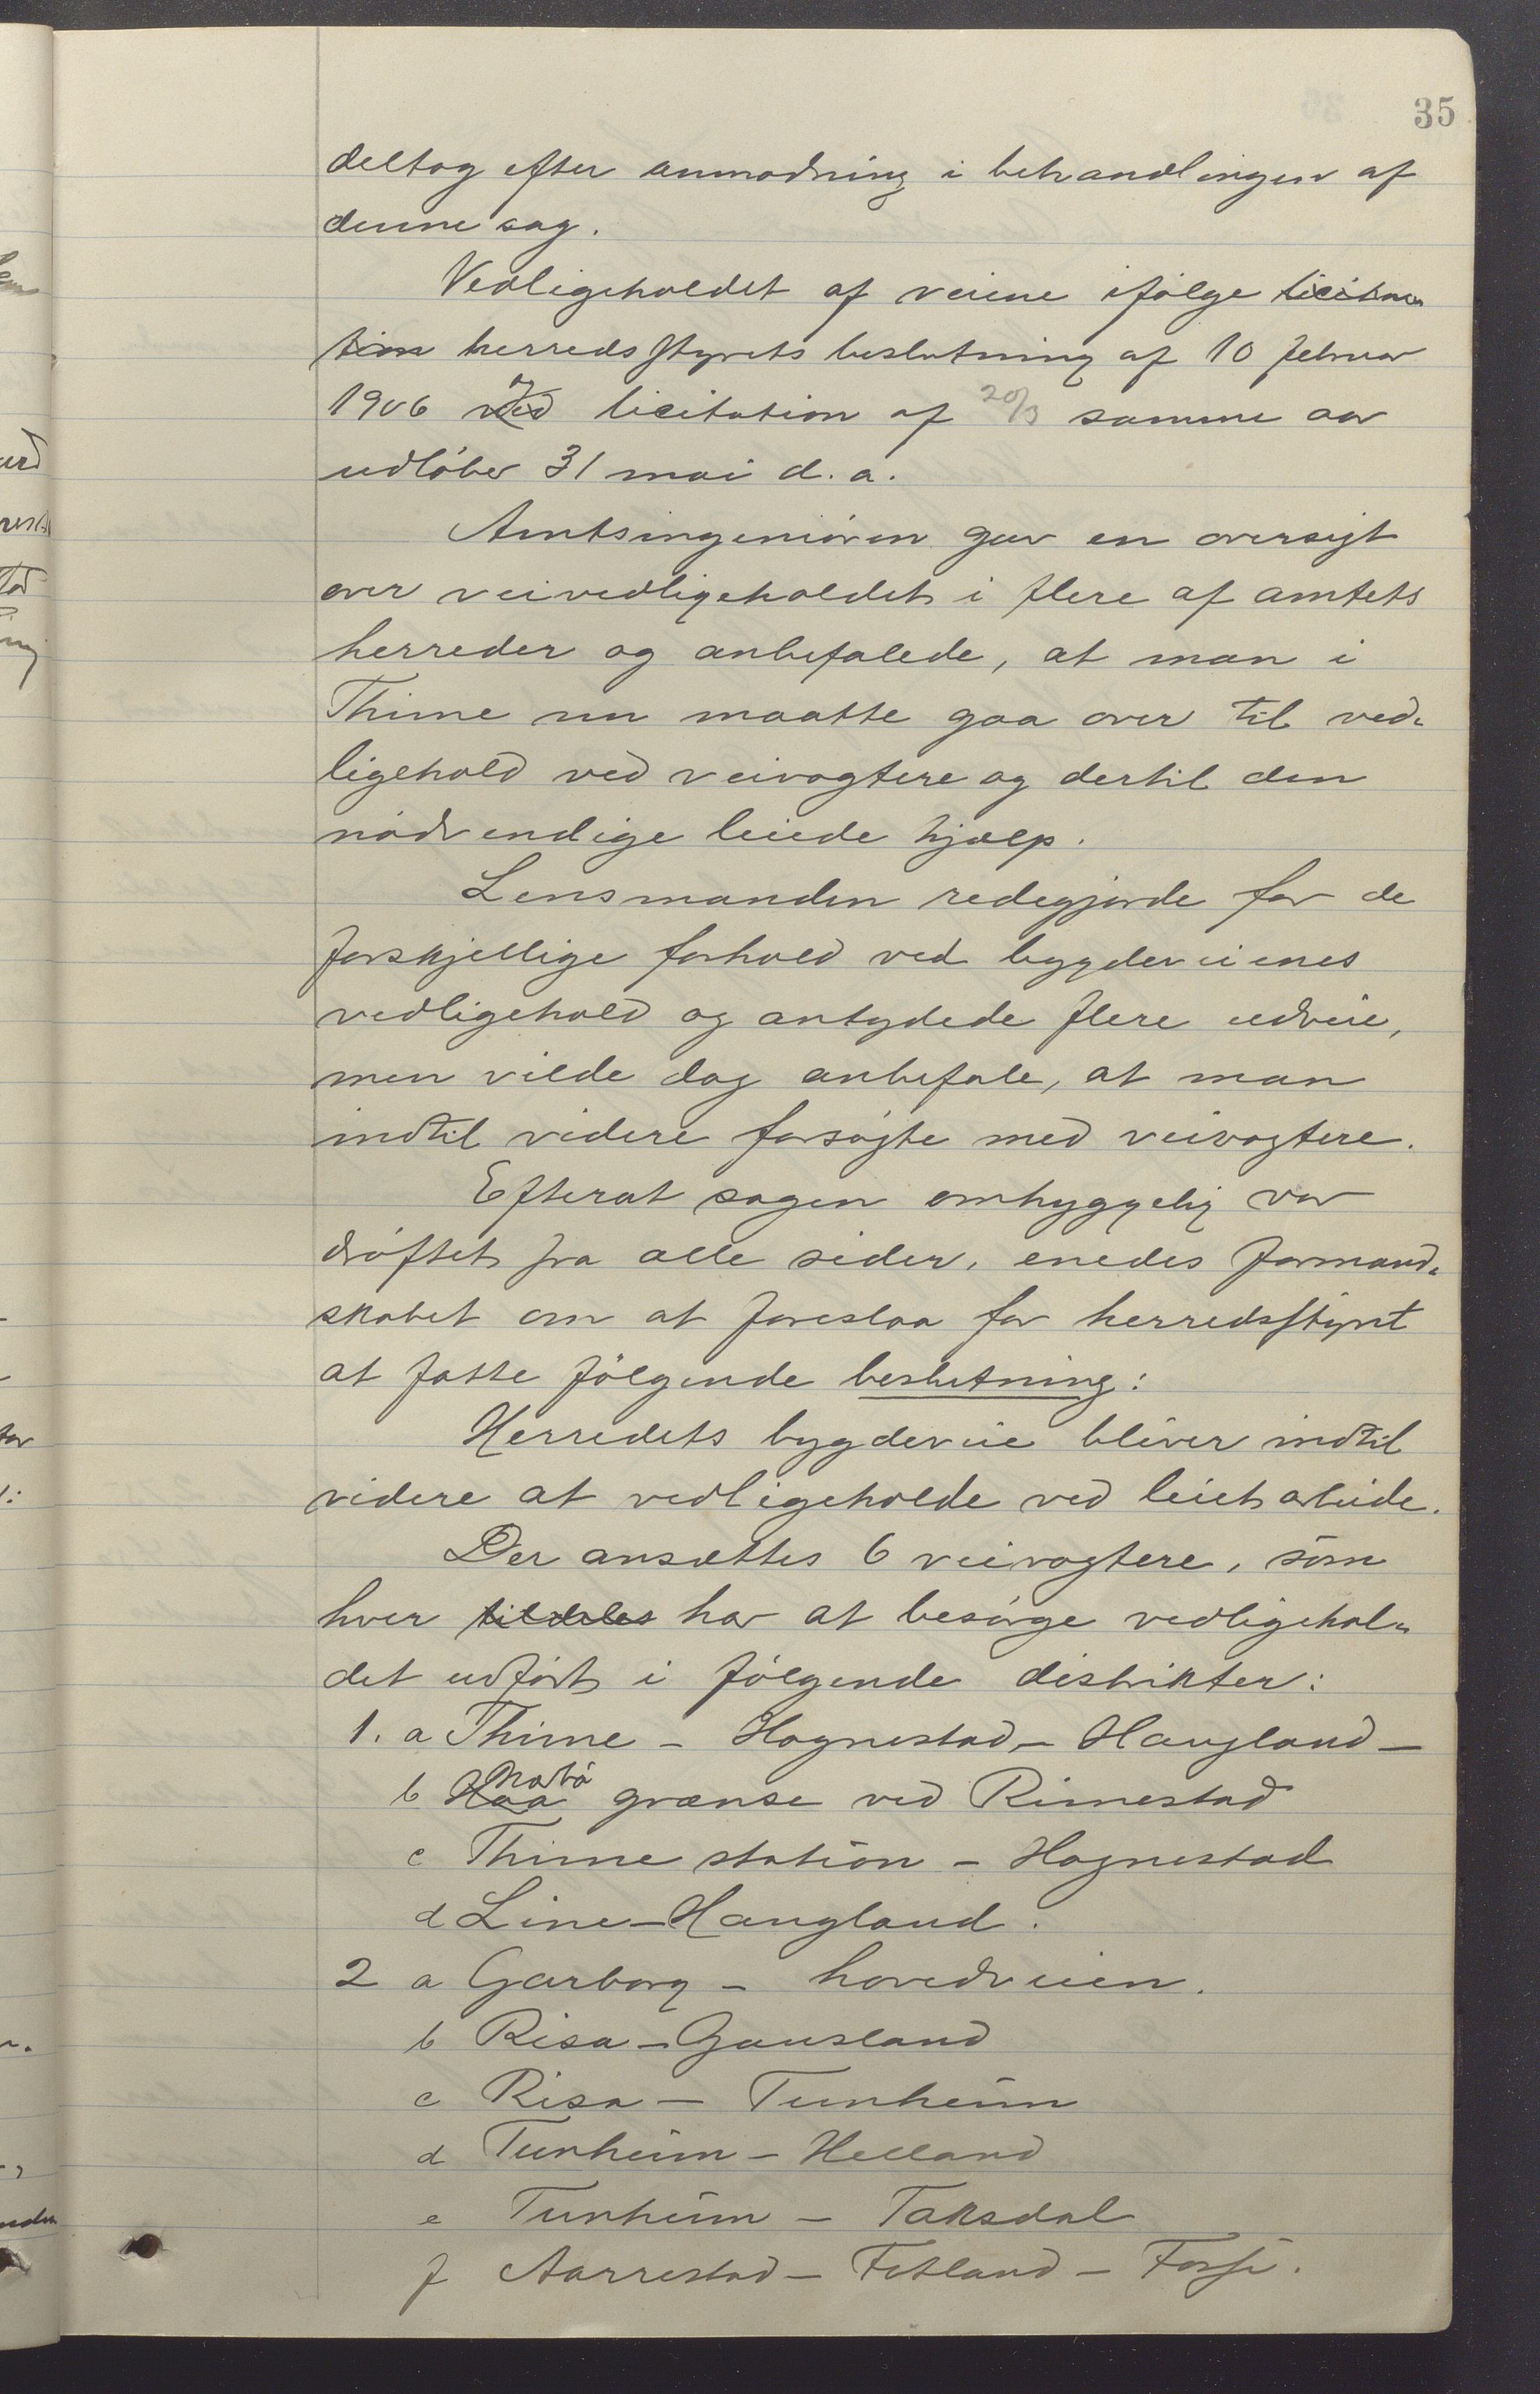 35
deltog efter anmodning i behandlingen af
denne sag.
Vedligeholdet af veiene ifølge licita-
tion herredsstyrets beslutning af 10 februar
1906 ved og licitation af 20/3 samme aar
udløber 31 mai d. a.
Amtsingeniøren gav en oversigt
over veivedligeholdet i flere af amtets
herreder og anbefalede, at man i
Thime nu maatte gaa over til ved-
ligehold ved veivogtere og dertil den
nødvendige leiede hjælp.
Lensmanden redegjorde for de
forskjellige forhold ved bygdeveienes
vedligehold og antydede flere udveie,
men vilde dog anbefale, at man
indtil videre forsøgte med veivogtere.
Efterat sagen omhyggelig var
drøftet fra alle sider, enedes formand-
skabet om at foreslaa for herredsstyret
at fatte følgende beslutning:
Herredets bygdeveie bliver indtil
videre at vedligeholde ved leiet arbeide.
Der ansættes 6 veivogtere, som
hver tildeles har at besørge vedligehol-
det udført i følgende distrikter:
1. a Thime - Hognestad - Haugland -
b Haa Nærbø grænse ved Rimestad
c Thime station - Hognestad
d Line - Haugland.
2 a Garborg - hovedveien.
b Risa - Gausland
c Risa - Tunheim
d Tunheim - Helland
e Tunheim - Taksdal
f Aarrestad - Fotland - Fosse.